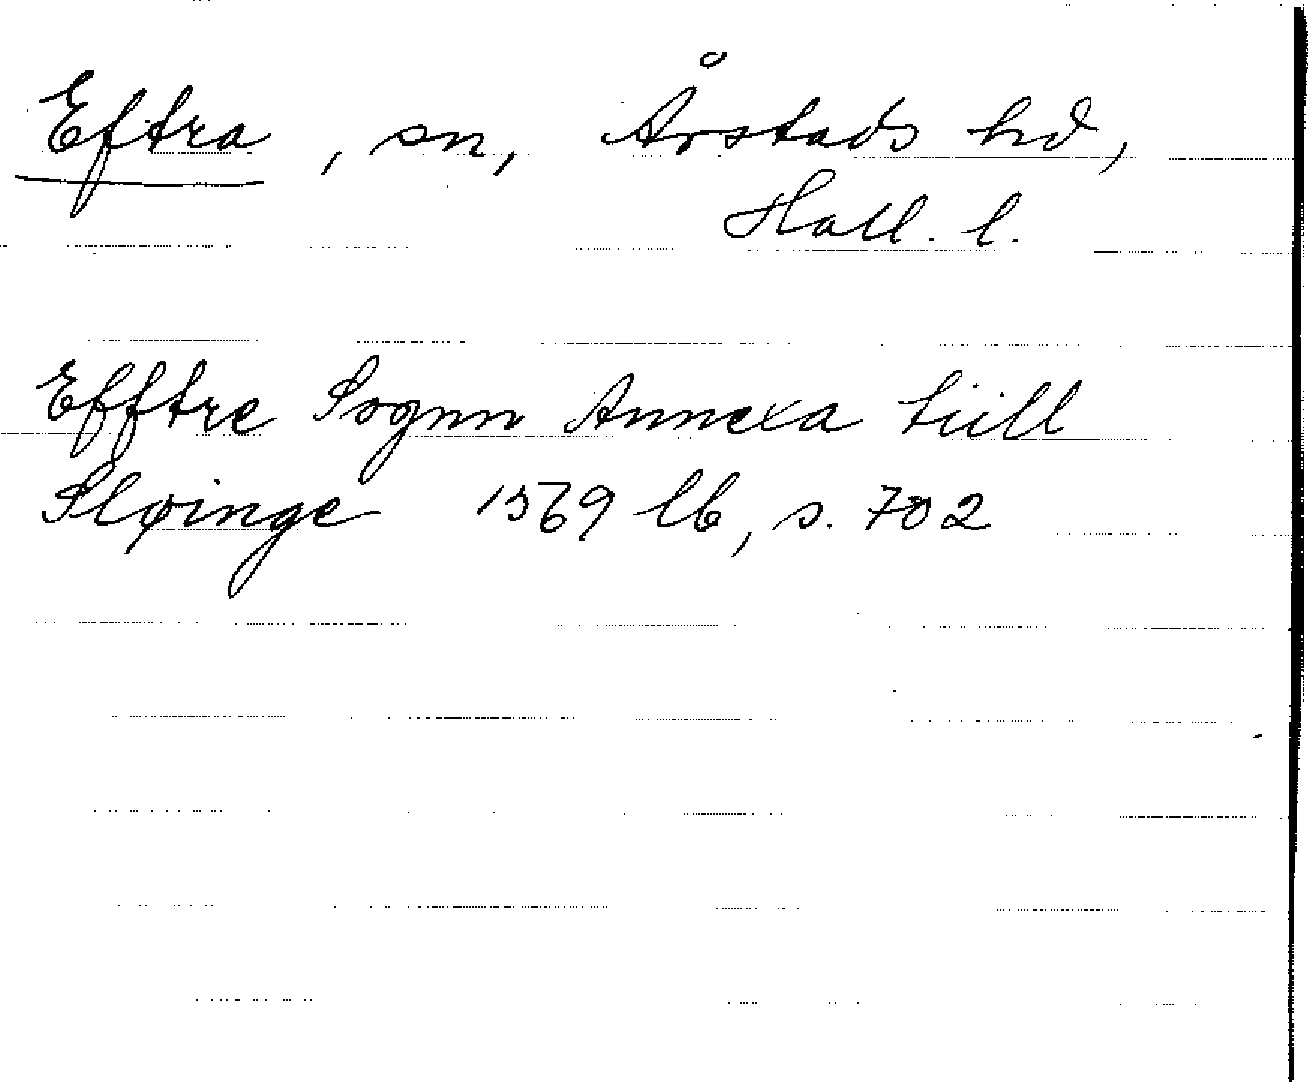 Eftra, sn, Årstads hd,
Hall. l.
Efftre Sognn Annexa tiill
Sløinge 1569 lb, s. 702